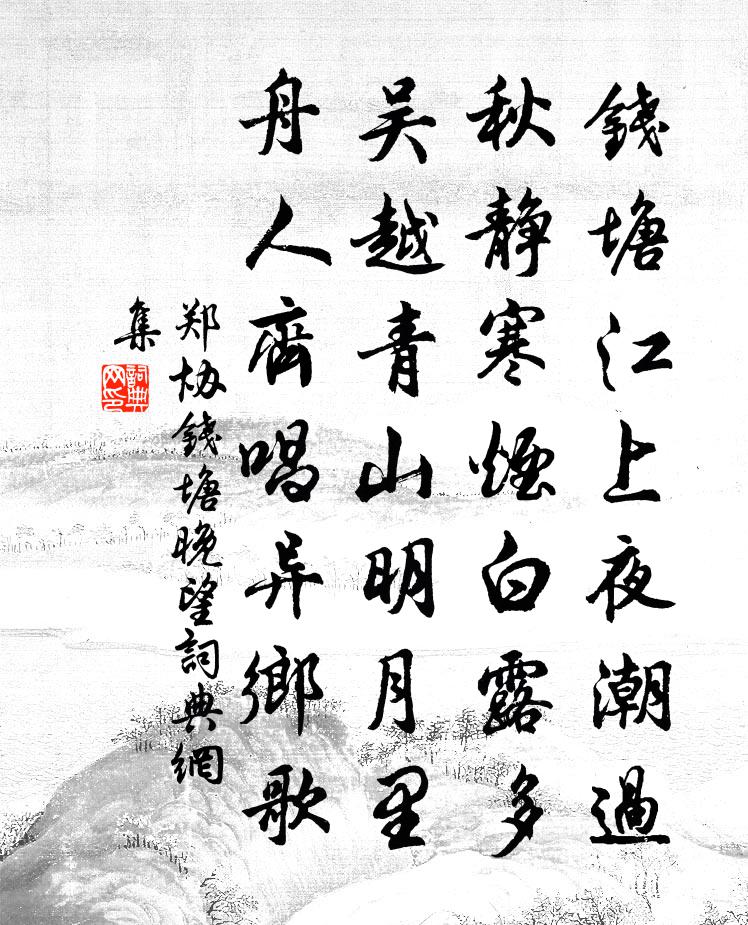 錢塘江上夜潮過
秋静寒煙白露多
吴越青山明月里
舟人齊唱异鄉歌
郑协錢塘晚望詞典網
集
詞典
网印